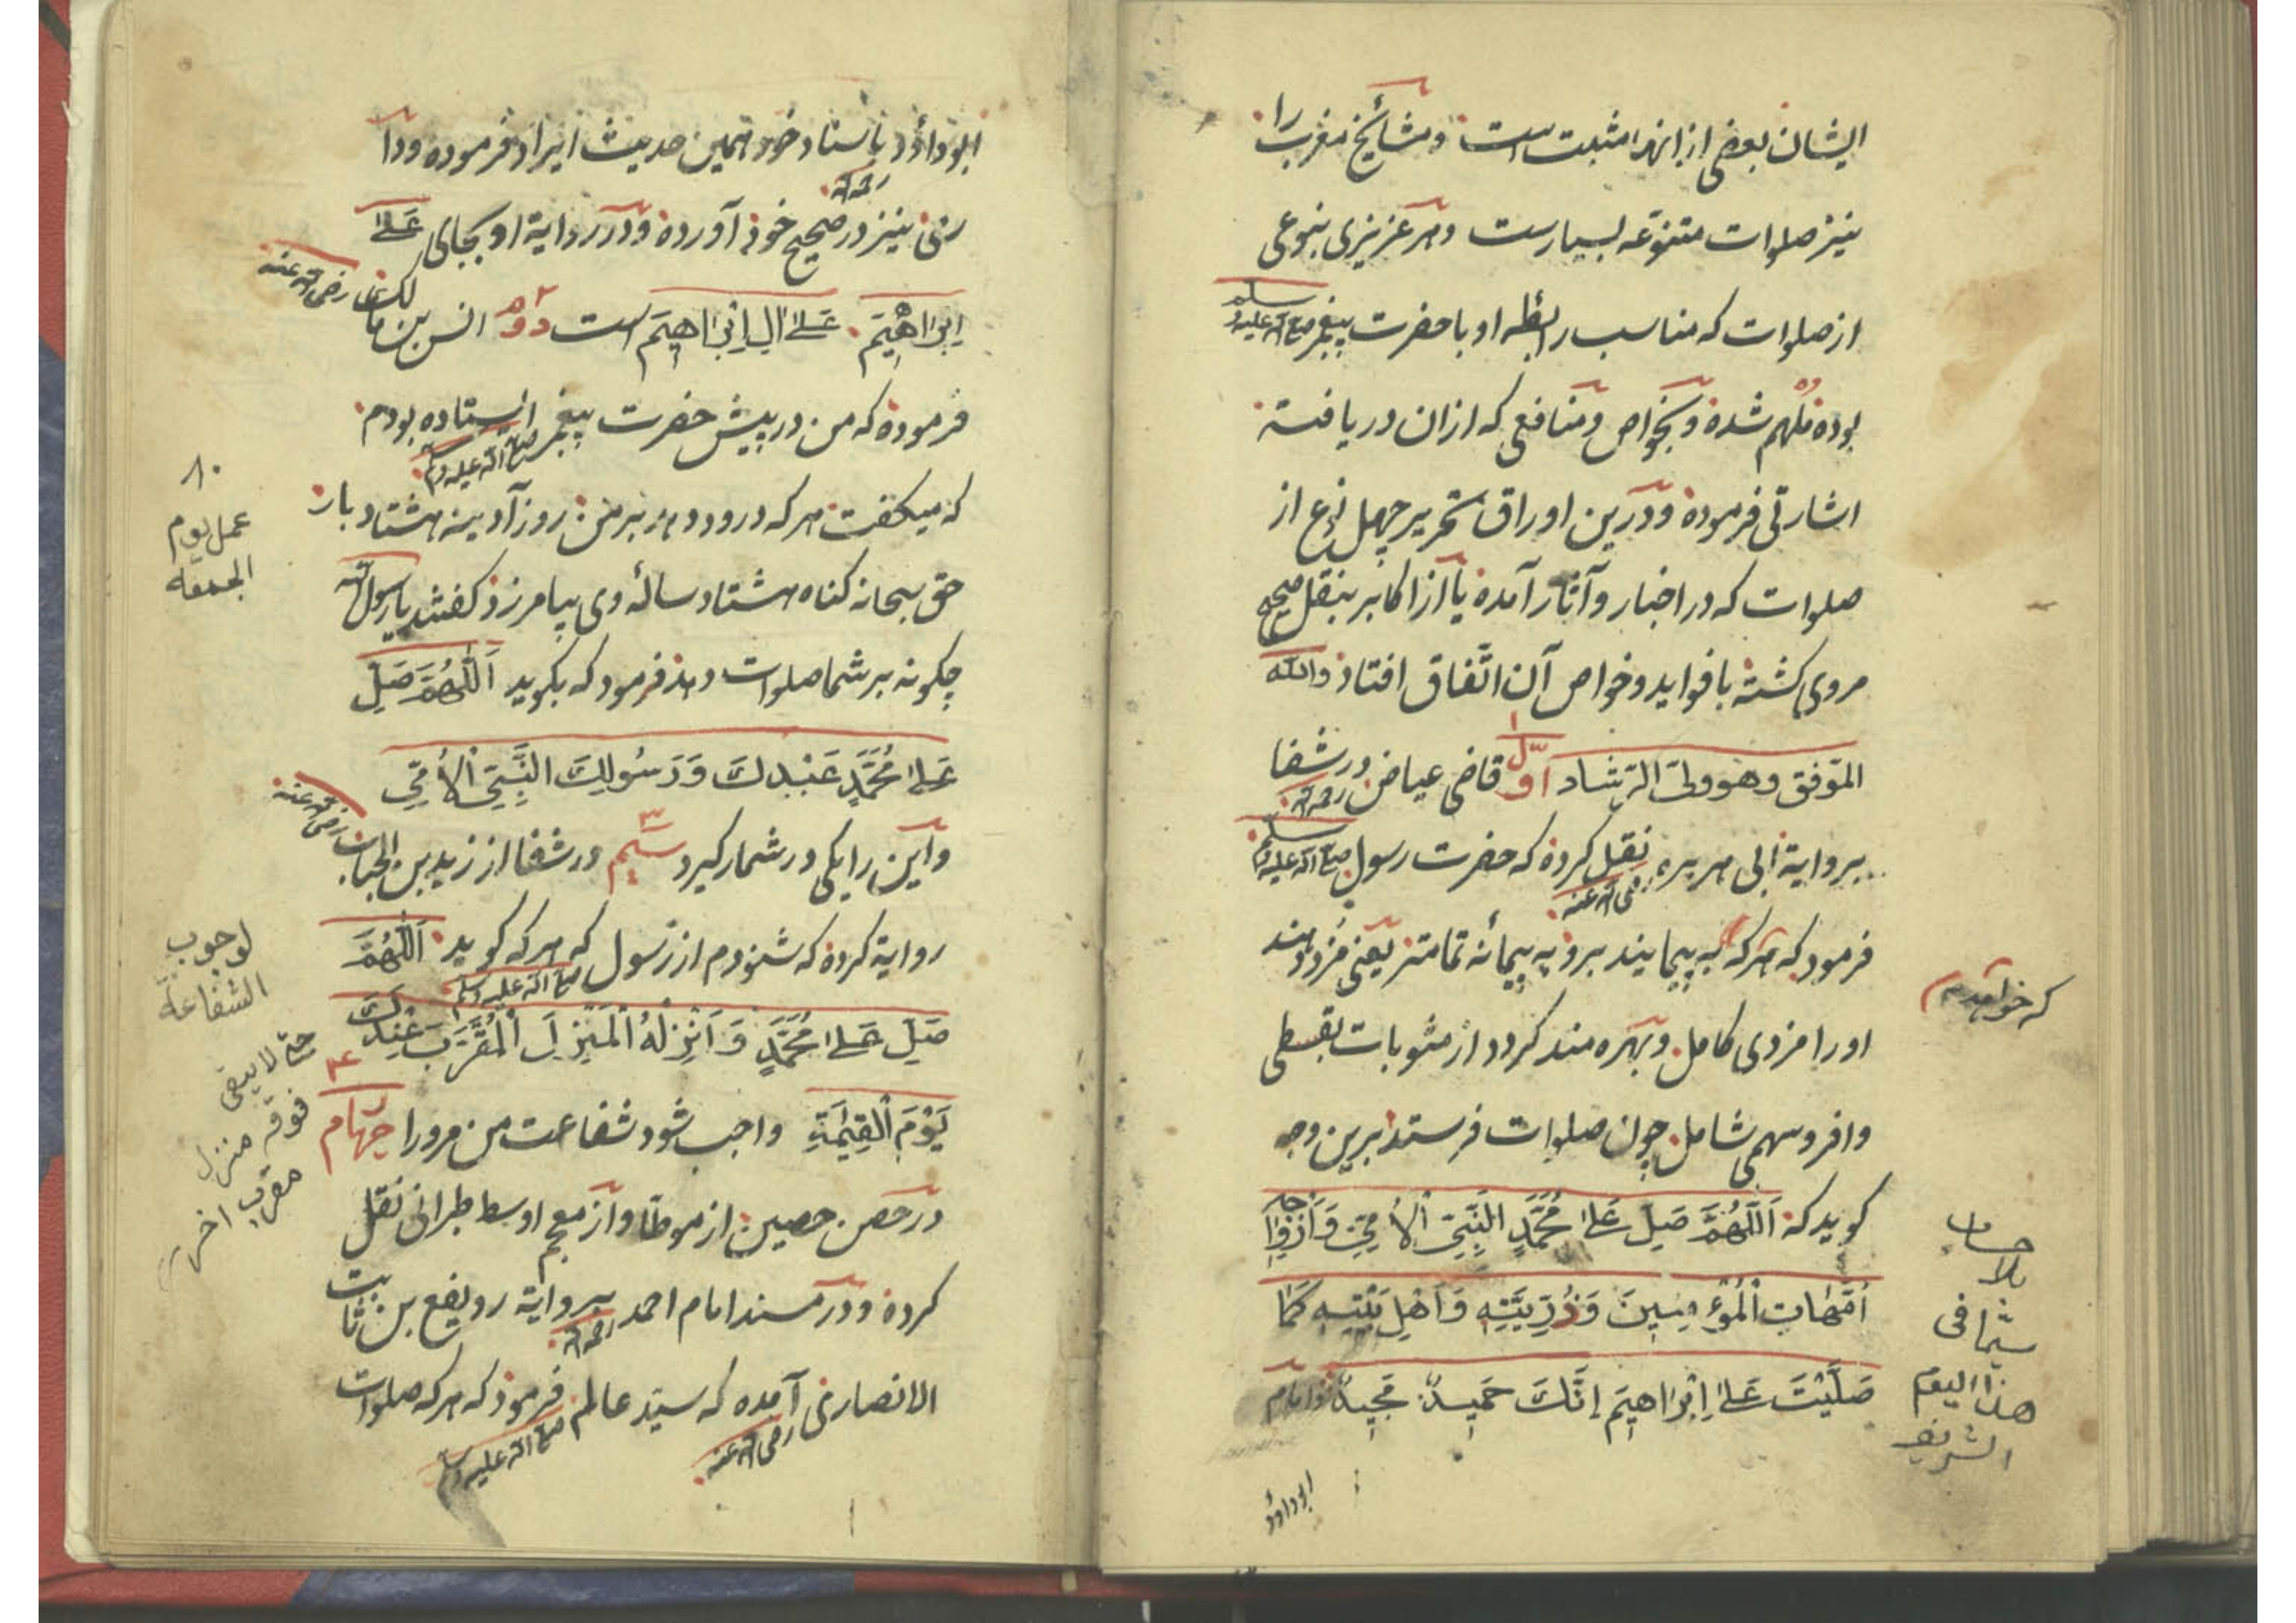 ایشان بعضی از انها مثبت است ومشایخ مغرب را
نیز صلوات متنوّعه بسیارست وهر عزیزی بنوعی
از صلوات که مناسب رابطه او با حضرت پیغمبر صلی الله علیه وسلم
بوده ملهم شده وبخواص ومنافعی که ازان دریافته
اشارتی فرموده ودرین اوراق تحریر چهل نوع از
صلوات که در اخبار وآثار آمده یا از اکابر بنقل صحیح
مروی کشته با فواید وخواص آن اتّفاق افتاد والله
الموفق وهو ولیّ الرشاد اوّل ۱ قاضی عیاض رحمه الله در شفا
بروایة ابی هریره رضی الله عنه نقل کرده که حضرت رسول صلی الله علیه وسلم
فرمود که هرکه به پیمایند برو به پیمانه تمامتر یعنی مزد دهند
که خواهد که
اورا مزدی کامل وبهره مند کردد از مثوبات بقسطی
وافر وسهمی شامل چون صلوات فرستد برین وجه
کوید که اَللّٰهُمَّ صَلِّ عَلٰی مُحَمَّدٍ النَّبِیِّ الْاُمِّیِّ وَاَزْوَاجِهِ
اُمَّهَاتِ الْمُؤْمِنِینَ وَذُرِّیَّتِهِ وَاَهْلِ بَیْتِهِ کَمَا
صَلَّیْتَ عَلٰی اِبْرَاهِیمَ اِنَّكَ حَمِیدٌ مَجِیدٌ وامام
بلا
فی
هذا الیوم
الشریف
ابوداود
ابوداود باسناد خود همین حدیث ایراد فرموده ودا
رمی نیز رحمه الله در صحیح خود آورده ودر روایة او بجای عَلٰی
اِبْرَاهِیمَ عَلٰی اٰلِ اِبْرَاهِیمَ است دوم ۲ انس بن مالك رضی الله عنه
فرموده که من در پیش حضرت پیغمبر صلی الله علیه وسلم ایستاده بودم
که میکفت هرکه درود دهد بر من روز آدینه هشتاد بار
حق سبحانه کناه هشتاد ساله وی بیامرزد کفتند یا رسول الله
چکونه بر شما صلوات دهند فرمود که بکوید اَللّٰهُمَّ صَلِّ
عَلٰی مُحَمَّدٍ عَبْدِكَ وَرَسُولِكَ النَّبِیِّ الْاُمِّیِّ
واین را یکی در شمار کیرد سیم ۳ در شفا از زید بن الحباب رضی الله عنه
روایة کرده که شنودم از رسول صلی الله علیه وسلم که هرکه کوید اَللّٰهُمَّ
صَلِّ عَلٰی مُحَمَّدٍ وَاَنْزِلْهُ الْمَنْزِلَ الْمُقَرَّبَ عِنْدَكَ
یَوْمَ الْقِیٰمَةِ واجب شود شفاعت من مرورا چهارم ۴
در حصن حصین از موطّا واز معجم اوسط طبرانی نقل
کرده ودر مسند امام احمد رحمه الله بروایة رویفع بن ثابت
الانصاری رضی الله عنه آمده که سیّد عالم صلی الله علیه وسلم فرمود که هرکه صلوات
۸۰
عمل یوم
الجمعة
لوجوب
الشفاعة
حتی لا یبقی
فوقه منزل
مقرب اخر